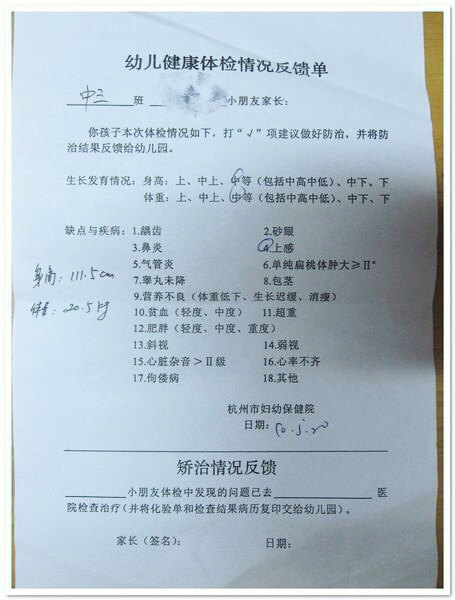 幼儿健康体检情况反馈单
中三 班 小朋友家长:
你孩子本次体检情况如下，打“√”项建议做好防治，并将防
治结果反馈给幼儿园。
生长发育情况: 身高: 上、中上、中等（包括中高中低）、中下、下
体重: 上、中上、中等（包括中高中低）、中下、下
缺点与疾病: 1.龋齿 2.砂眼
3.鼻炎 4.上感
5.气管炎 6.单纯扁桃体肿大≥Ⅱ°
身高: 111.5cm
7.睾丸未降 8.包茎
9.营养不良（体重低下、生长迟缓、消瘦）
体重: 20.5kg
10.贫血（轻度、中度） 11.超重
12.肥胖（轻度、中度、重度）
13.斜视 14.弱视
15.心脏杂音>Ⅱ级 16.心率不齐
17.佝偻病 18.其他
杭州市妇幼保健院
日期: 10.5.20
矫治情况反馈
小朋友体检中发现的问题已去 医
院检查治疗（并将化验单和检查结果病历复印交给幼儿园）。
家长（签名）: 日期: